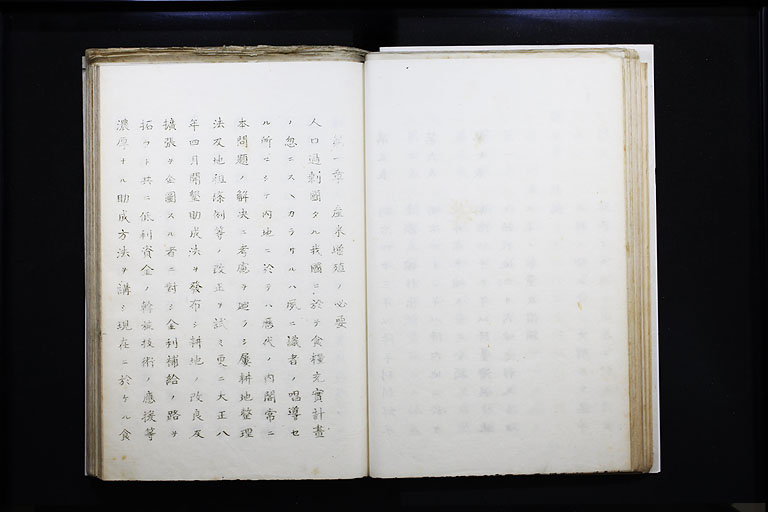 第一章 産米増殖ノ必要
人口過剰國タル我國ニ於テ食糧充實計畫
ノ忽ニスヘカラサルハ夙ニ識者ノ唱導セ
ル所ニシテ内地ニ於テハ歴代ノ内閣常ニ
本問題ノ解决ニ考慮ヲ廻ラシ屢耕地整理
法及地租條例等ノ改正ヲ試ミ更ニ大正八
年四月開墾助成法ヲ發布シ耕地ノ改良及
擴張ヲ企圖スル者ニ對シ金利補給ノ路ヲ
拓クト共ニ低利資金ノ斡旋技術ノ應援等
濃厚ナル助成方法ヲ講シ現在ニ於ケル食